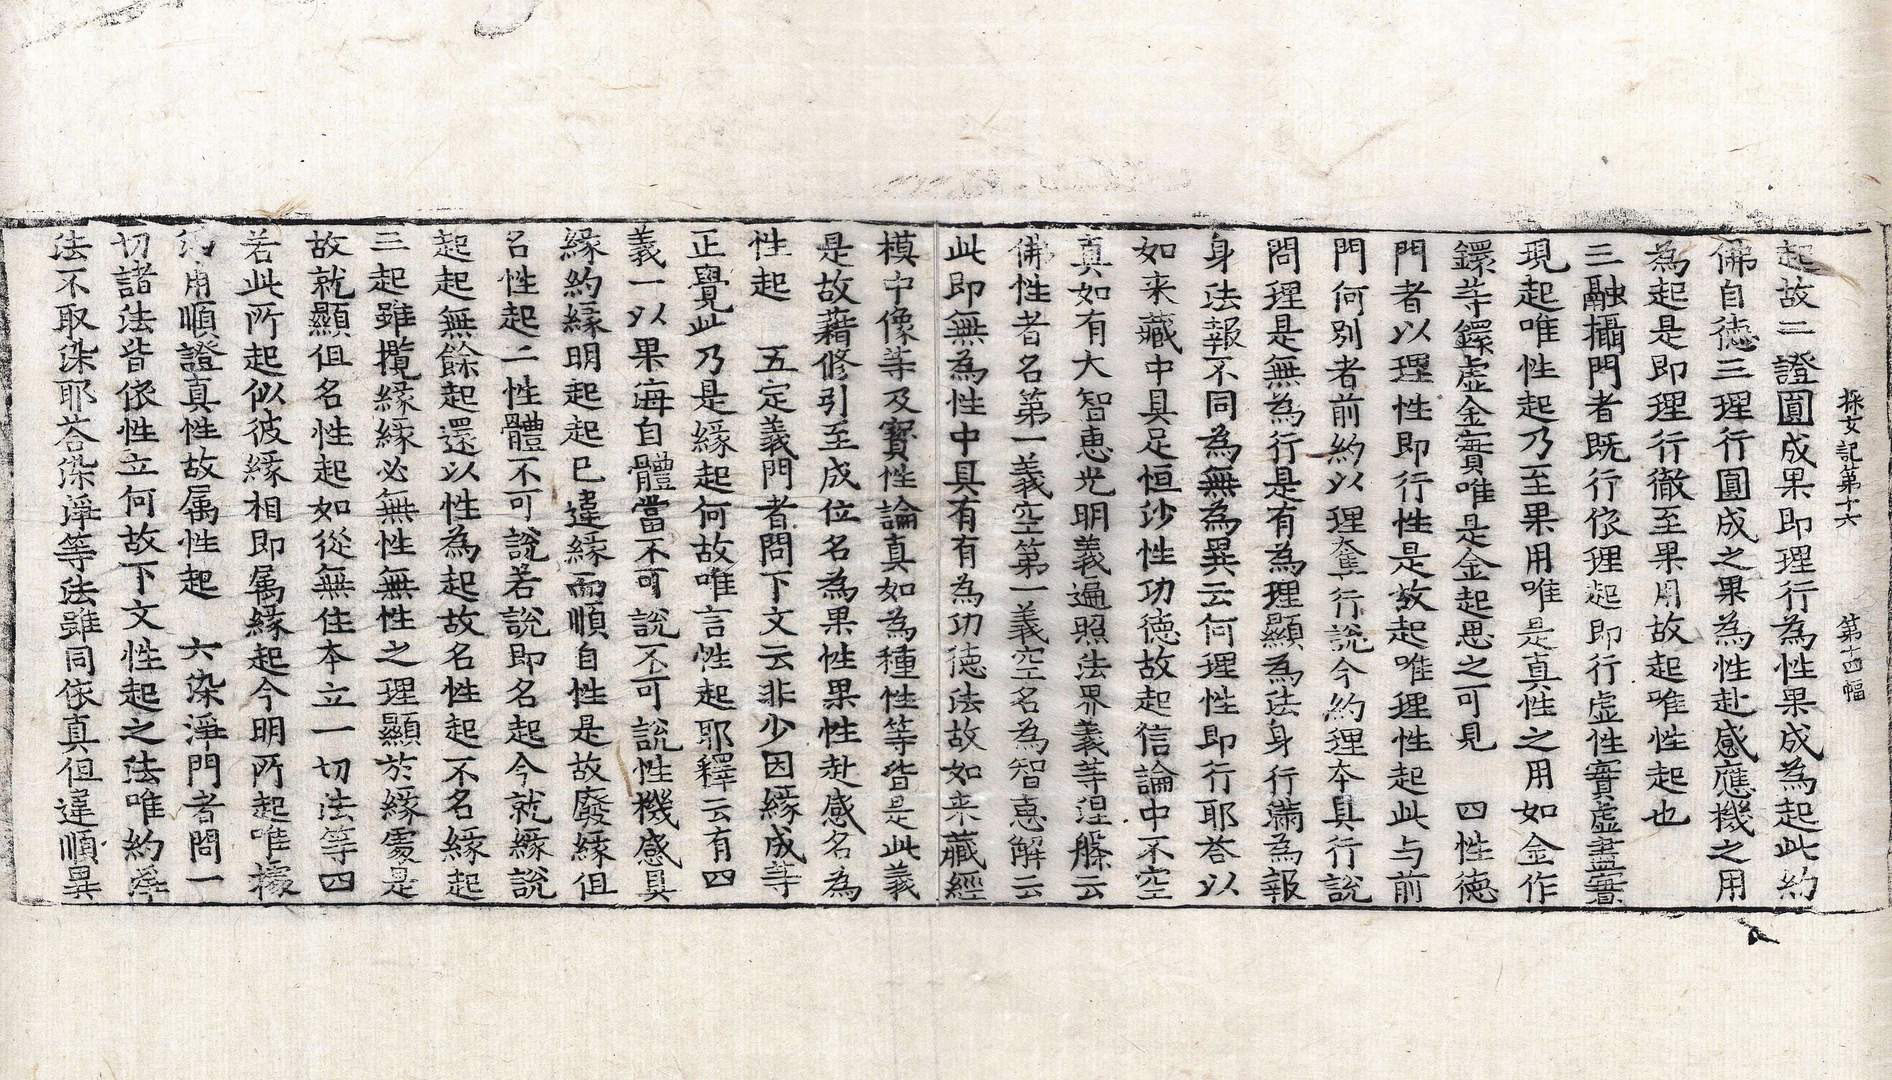 探玄記第十六 第十四幅
起故二證圓成果即理行為性果成為起此約
佛自德三理行圓成之果為性赴感應機之用
為起是即理行徹至果用故起唯性起也
三融攝門者既行依理起即行虛性實虛盡實
現起唯性起乃至果用唯是真性之用如金作
鐶等鐶虛金實唯是金起思之可見 四性德
門者以理性即行性是故起唯理性起此与前
門何別者前約以理奪行說今約理本具行說
問理是無為行是有為理顯為法身行滿為報
身法報不同為無為異云何理性即行耶荅以
如来藏中具足恒沙性功德故起信論中不空
真如有大智惠光明義遍照法界義等涅槃云
佛性者名第一義空第一義空名為智惠解云
此即無為性中具有有為功德法故如来藏經
模中像等及寶性論真如為種性等皆是此義
是故藉修引至成位名為果性果性赴感名為
性起 五定義門者問下文云非少因緣成等
正覺此乃是緣起何故唯言性起耶釋云有四
義一以果海自體當不可說不可說性機感具
緣約緣明起起已違緣而順自性是故廢緣但
名性起二性體不可說若說即名起今就緣說
起起無餘起還以性為起故名性起不名緣起
三起雖攬緣緣必無性無性之理顯於緣處是
故就顯但名性起如從無住本立一切法等四
若此所起似彼緣相即属緣起今明所起唯據
淨用順證真性故属性起 六染淨門者問一
切諸法皆依性立何故下文性起之法唯約淨
法不取染耶荅染淨等法雖同依真但違順異